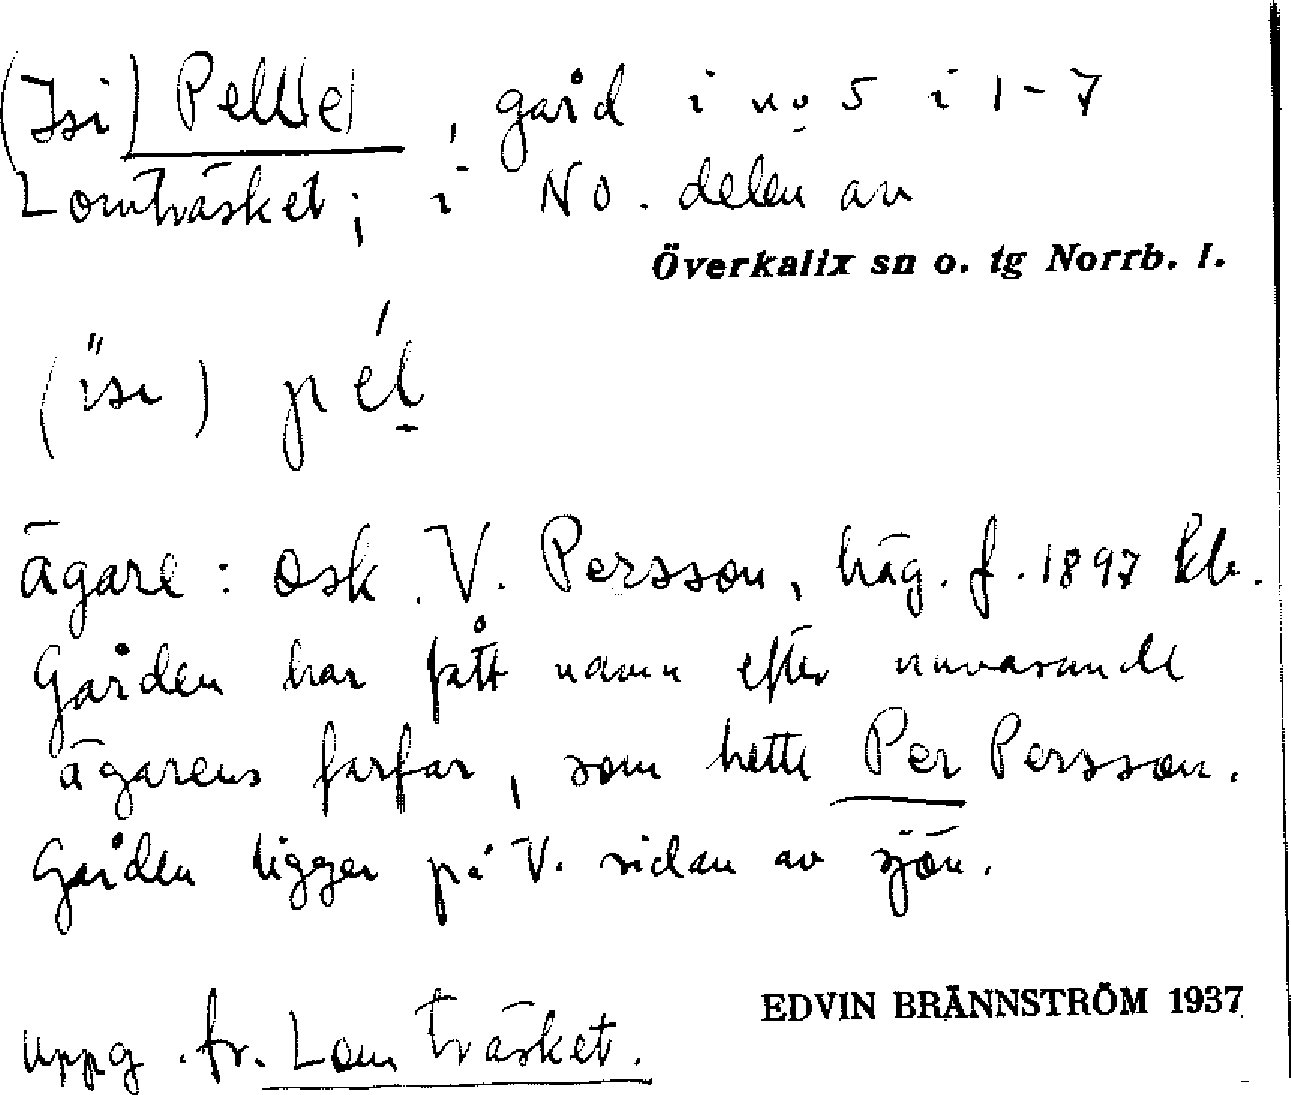 (Isi) Pell(e), gård i no 5 i 1-7
Lomträsket; i NO. delen av
Överkalix sn o. tg Norrb. l.
(ïsi) pél
ägare: Osk. V. Persson, häg. f. 1897
Gården har fått namn efter nuvarande
ägarens farfar, som hette Per Persson.
Gården ligger på V. sidan av sjön.
uppg. fr. Lomträsket.
EDVIN BRÄNNSTRÖM 1937